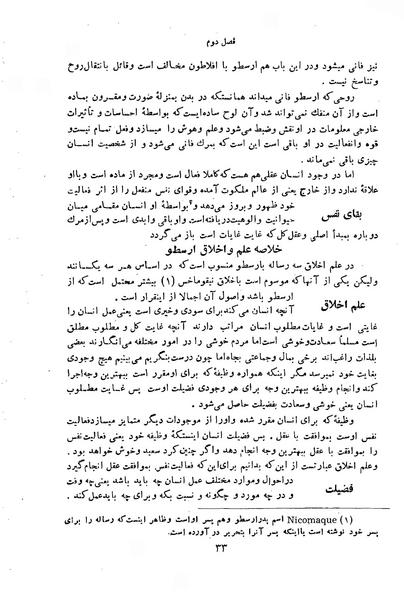 فصل دوم
نیز فانی میشود ودر این باب هم ارسطو با افلاطون مخالف است وقائل بانتقال روح
وتناسخ نیست .
روحی که ارسطو فانی میداند همانستکه در بدن بمنزلهٔ صورت ومقرون بماده
است واز آن منفك نمی‌تواند شد وآن لوح ساده‌ایست که بواسطهٔ احساسات و تأثیرات
خارجی معلومات در او نقش وضبط می‌شود وعلم وهوش را میسازد وفعل تمام نیست و
قوه وانفعالیت در او باقی است این است که بمرك فانی می‌شود و از شخصیت انسان
چیزی باقی نمی‌ماند .
اما در وجود انسان عقلی‌هم هست که کاملا فعال است ومجرد از ماده است وبا او
علاقهٔ ندارد واز خارج یعنی از عالم ملکوت آمده وقوای نفس منفعل را از اثر فعالیت
خود ظهور و بروز می‌دهد و بواسطهٔ او انسان مقامی میان
بقای نفس
حیوانیت والوهیت دریافته است واو باقی وابدی است وپس از مرك
دوباره بمبدأ اصلی وعقل کل که غایت غایات است باز می‌گردد
خلاصه علم واخلاق ارسطو
در علم اخلاق سه رساله بارسطو منسوب است که در اساس هر سه یکسانند
ولیکن یکی از آنها که موسوم است باخلاق نیقوماخس (۱) بیشتر محتمل است که از
ارسطو باشد واصول آن اجمالا از اینقرار است .
علم اخلاق
آنچه انسان می‌کند برای سودی وخیری است یعنی عمل انسان را
غایتی است و غایات مطلوب انسان مراتب دارند آنچه غایت کل و مطلوب مطلق
است مسلماً سعادت وخوشی است اما مردم خوشی را در امور مختلفه می‌انگارند بعضی
بلذات راغب‌اند برخی بمال وجماعتی بجاه اما چون درست بنگریم می‌بینیم هیچ وجودی
بغایت خود نمیرسد مگر اینکه همواره وظیفهٔ که برای او مقرر است ببهترین وجه اجرا
کند وانجام وظیفه ببهترین وجه برای هر وجودی فضیلت اوست پس غایت مطلوب
انسان یعنی خوشی وسعادت بفضیلت حاصل می‌شود .
وظیفهٔ که برای انسان مقرر شده واورا از موجودات دیگر متمایز میسازد فعالیت
نفس اوست بموافقت با عقل . پس فضیلت انسان اینستکهٔ وظیفه خود یعنی فعالیت نفس
را بموافقت با عقل ببهترین وجه انجام دهد واگر چنین کرد سعید وخوش خواهد بود .
وعلم اخلاق عبارتست از این که بدانیم برای این که فعالیت نفس بموافقت عقل انجام گیرد
در احوال وموارد مختلف عمل انسان چه باید باشد یعنی چه وقت
فضیلت
و در چه مورد و چگونه و نسبت بکه وبرای چه باید عمل کند .
(۱) Nicomaque اسم پدر ارسطو وهم پسر اواست وظاهر اینست که رساله را برای
پسر خود نوشته است یا اینکه پسر آنرا بتحریر در آورده است.
۳۳